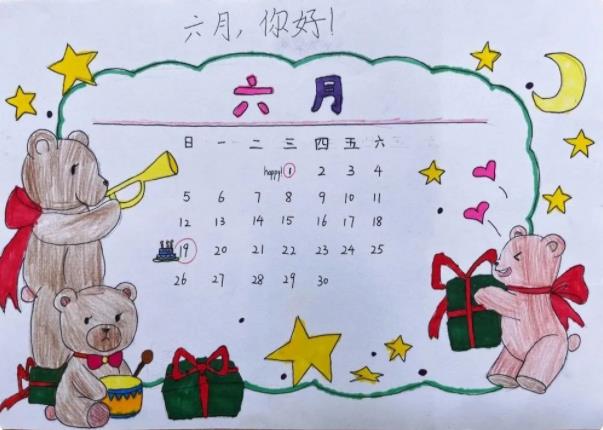 六月，你好！
六月
日 一 二 三 四 五 六
happy! 1 2 3 4
5 6 7 8 9 10 11
12 13 14 15 16 17 18
19 20 21 22 23 24 25
26 27 28 29 30